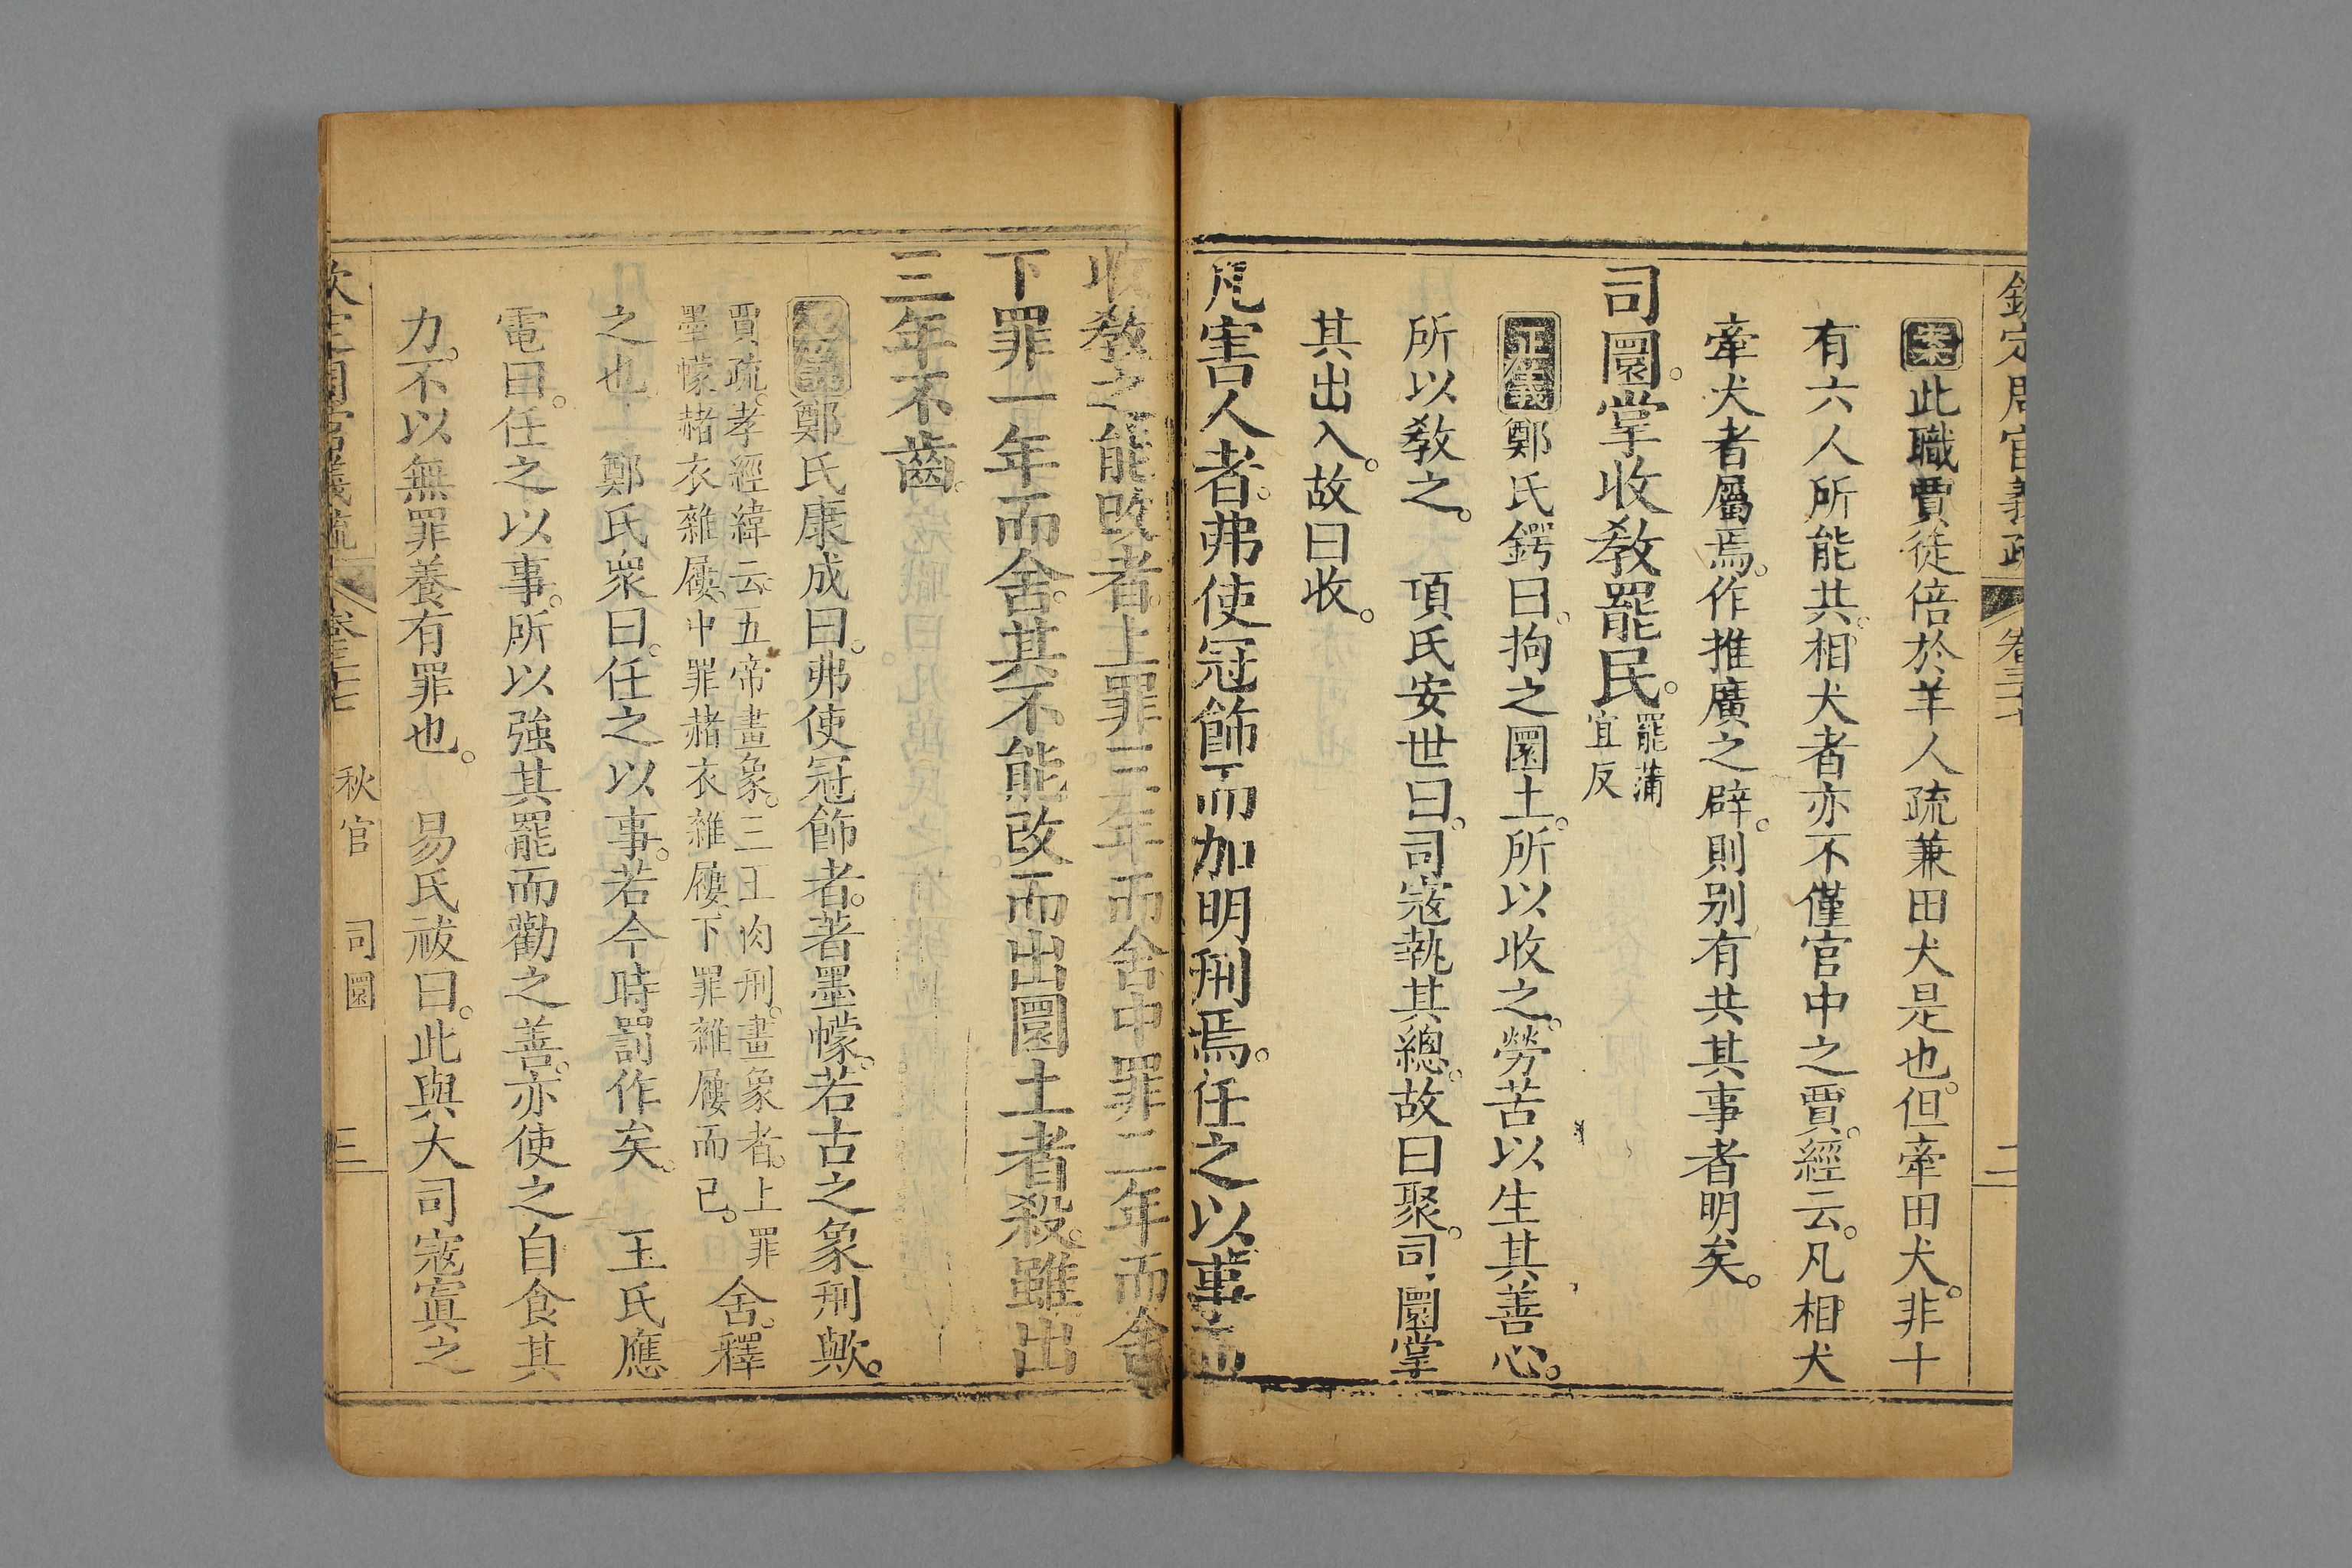 欽定周官義疏 卷三十七 二
案此職賈徒倍於羊人疏兼田犬是也。但牽田犬。非十
有六人所能共。相犬者亦不僅官中之賈。經云。凡相犬
牽犬者屬焉。作推廣之辟。則别有共其事者明矣。
司圜。掌收教罷民。罷蒲
宜反
正義鄭氏鍔曰。拘之圜土。所以收之。勞苦以生其善心。
所以教之。 項氏安世曰。司寇執其總。故曰聚。司圜掌
其出入。故曰收。
凡害人者。弗使冠飾而加明刑焉。任之以事而
收教之。能改者。上罪三年而舍。中罪二年而舍。
下罪一年而舍。其不能改而出圜土者殺。雖出
三年不齒。
正義鄭氏康成曰。弗使冠飾者。著墨幪。若古之象刑歟。
賈疏。孝經緯云。五帝畫象。三王肉刑。畫象者。上罪
墨幪赭衣雜屨。中罪赭衣雜屨。下罪雜屨而已。
舍。釋
之也。 鄭氏衆曰。任之以事。若今時罰作矣。 王氏應
電曰。任之以事。所以強其罷而勸之善。亦使之自食其
力。不以無罪養有罪也。 易氏祓曰。此與大司寇寘之
欽定周官義疏 卷三十七 秋官 司圜 三